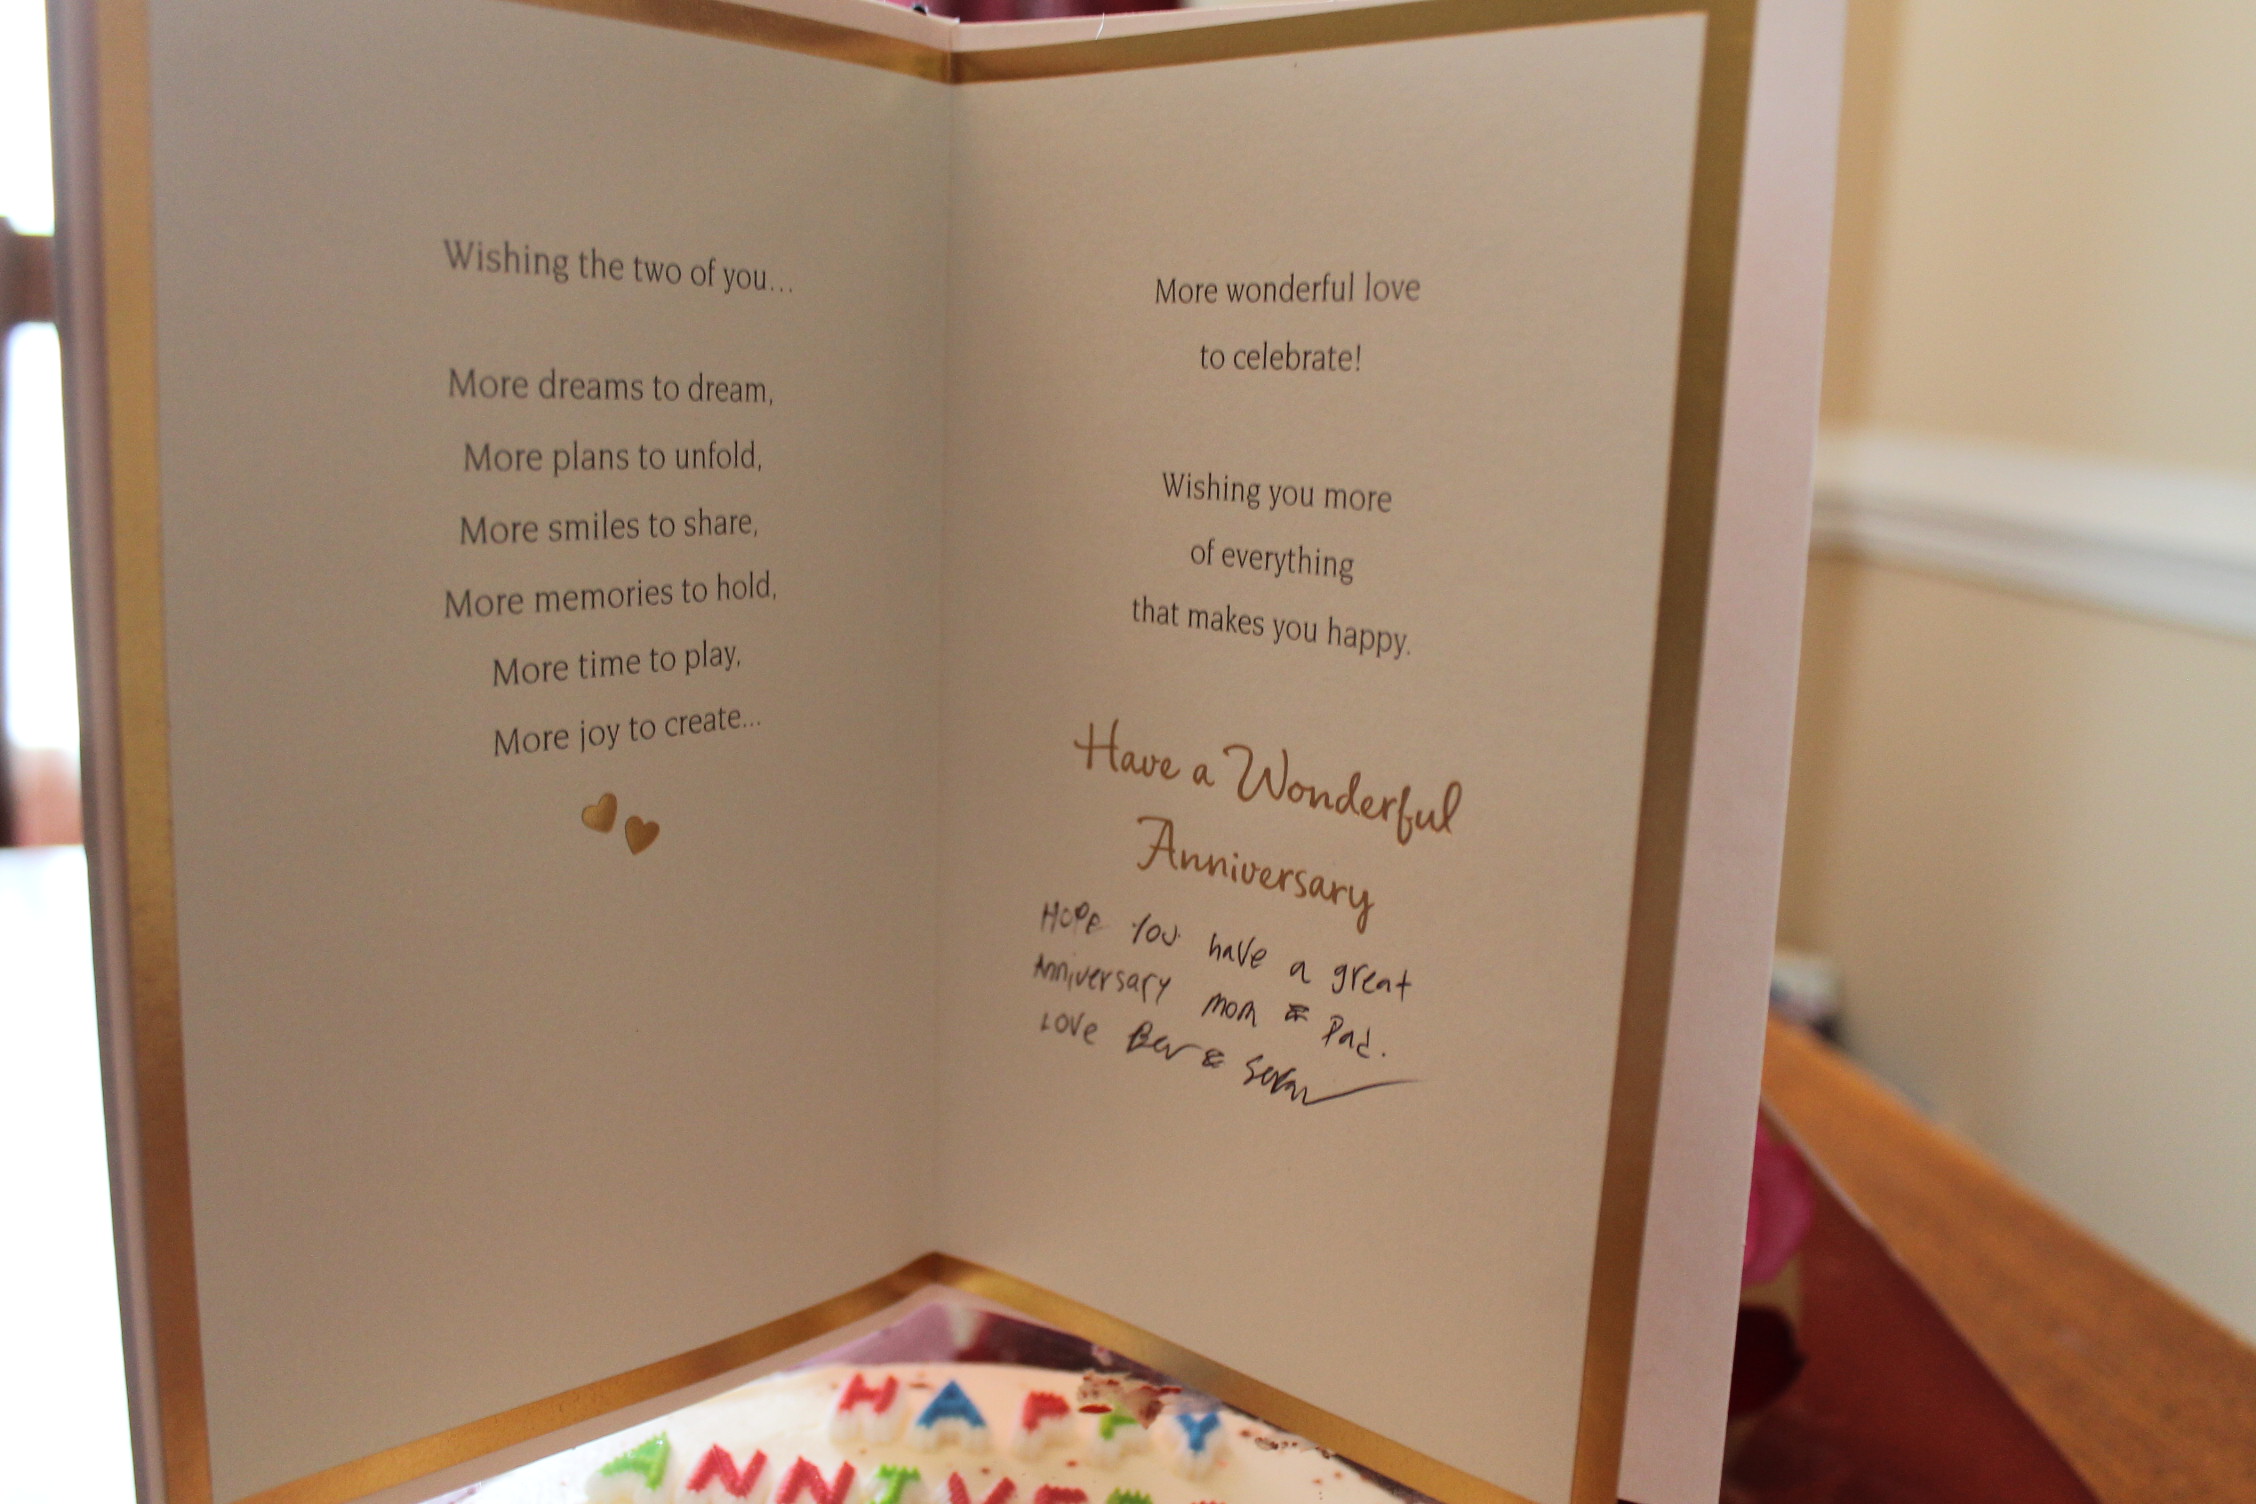 Wishing the two of you...
More dreams to dream,
More plans to unfold,
More smiles to share,
More memories to hold,
More time to play,
More joy to create...
More wonderful love
to celebrate!
Wishing you more
of everything
that makes you happy.
Have a Wonderful
Anniversary
HOPE YOU have a great
Anniversary mom & Dad.
LOVE &
HAPPY